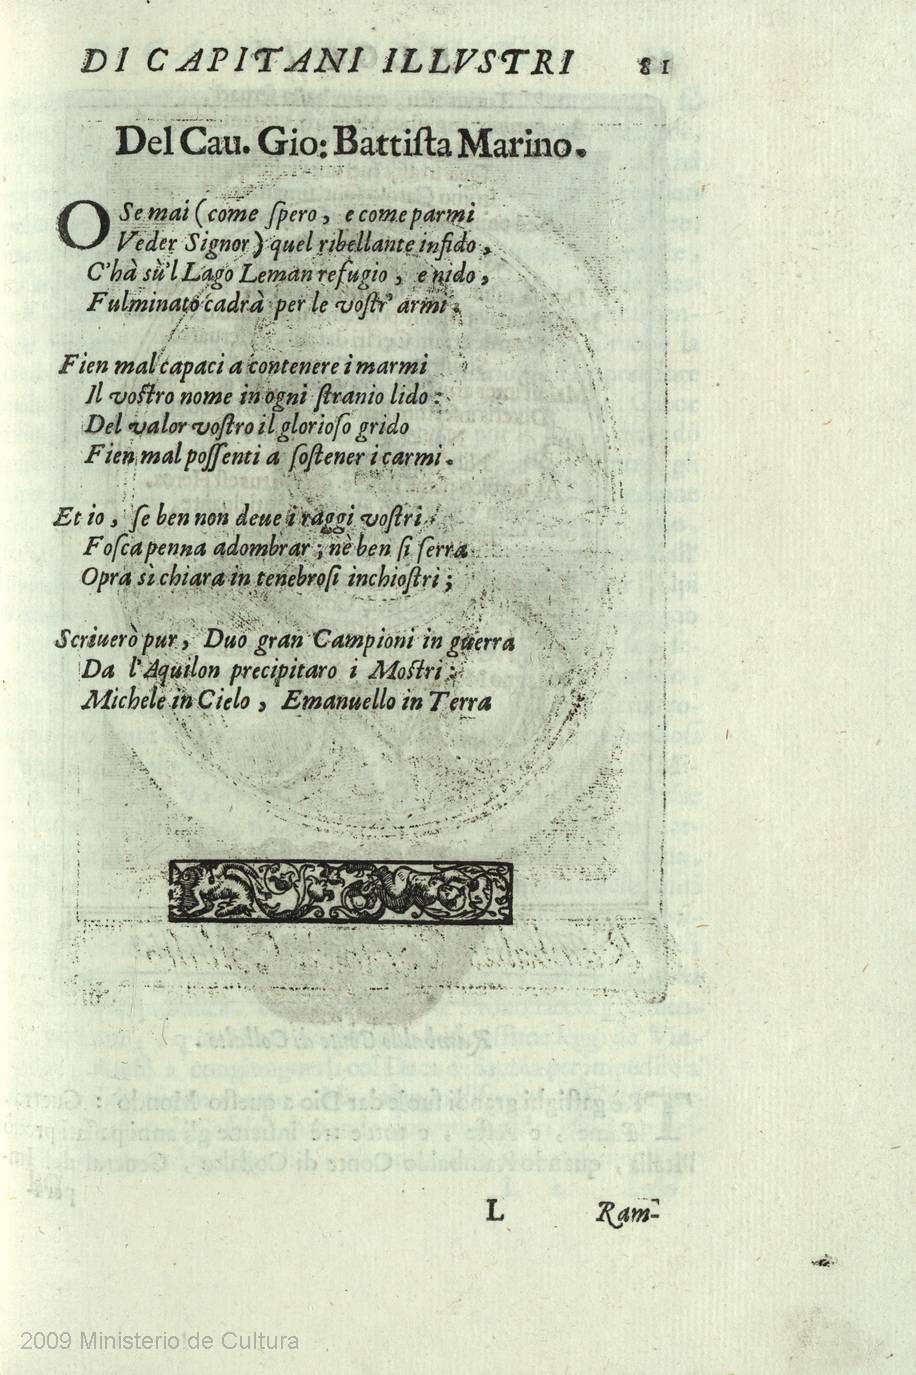 DI CAPITANI ILLVSTRI 81
Del Cau. Gio: Battiſta Marino.
O Se mai (come ſpero, e come parmi
Veder Signor) quel ribellante infido,
C'hà sù'l Lago Leman refugio, e nido,
Fulminato cadrà per le voſtr' armi.
Fien mal capaci a contenere i marmi
Il voſtro nome in ogni ſtranio lido:
Del valor voſtro il glorioſo grido
Fien mal poſſenti a ſoſtener i carmi.
Et io, ſe ben non deue i raggi voſtri
Foſca penna adombrar; nè ben ſi ſerra
Opra sì chiara in tenebroſi inchioſtri;
Scriuerò pur, Duo gran Campioni in guerra
Da l'Aquilon precipitaro i Moſtri;
Michele in Cielo, Emanuello in Terra
L Ram-
2009 Ministerio de Cultura